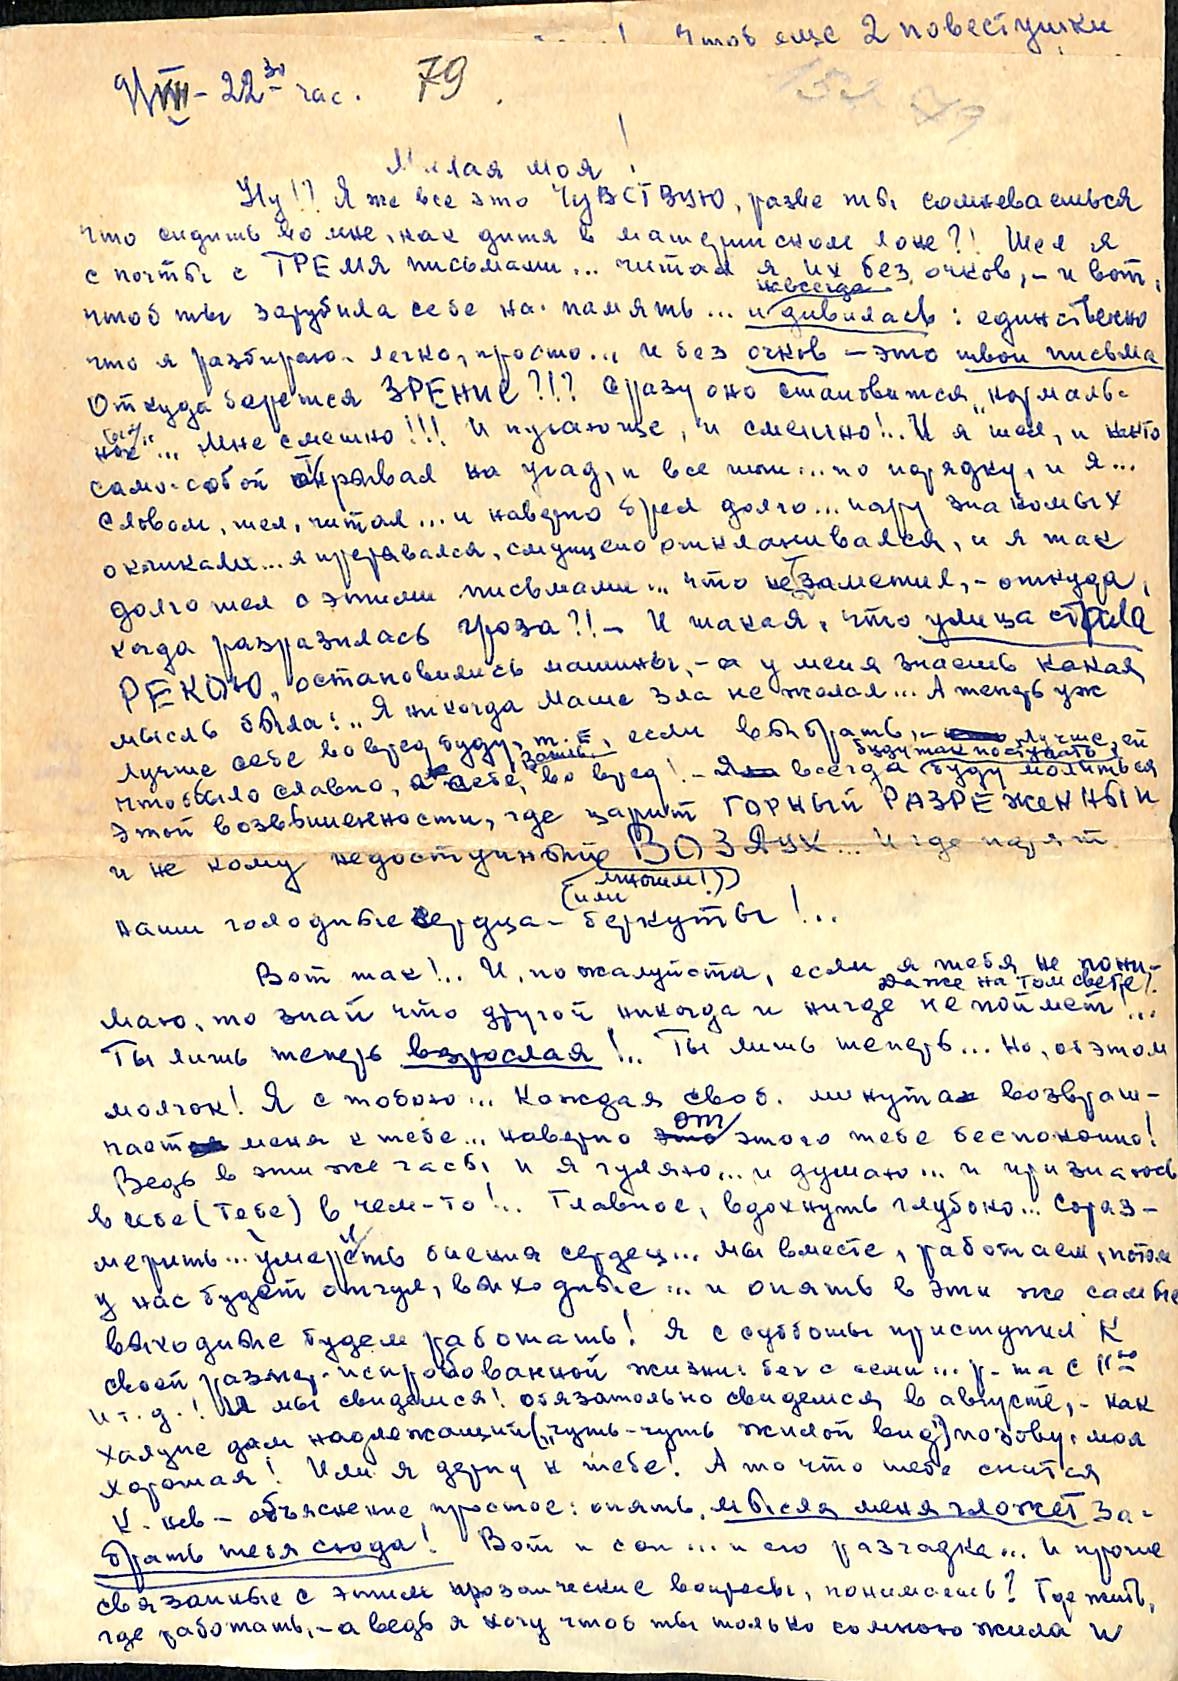 Чтоб еще 2 повестушки
VII - 22 30 час. 79
Милая моя!
Ну!? Я же все это ЧУВСТВУЮ, разве ты сомневаешься
что сидишь во мне, как дитя в материнском лоне?! Шел я
с почты с ТРЕМЯ письмами... читал я их без очков, - и вот,
навсегда
чтоб ты зарубила себе на память... и дивилась: единственно
что я разбираю легко, просто... и без очков - это твои письма
Откуда берется ЗРЕНИЕ?!? Сразу оно становится "нормаль-
ное"... Мне смешно!!! И пугающе, и смешно!.. И я шел, и
само-собой открывал на угад, и все шли... по порядку, и я...
Словом, шел, читал... и наверно брел долго... пару знакомых
окликали... я прерывался, смущенно откланивался, и я так
долго шел с этими письмами... что не заметил, - откуда,
когда разразилась гроза?!! - И такая, что улица стала
РЕКОЮ, остановились машины, - а у меня знаешь какая
мысль была: "Я никогда Маше зла не желал... А теперь уж
лучше себе во вред буду, т.е., если выбрать, - лучше ей
буду так поступать
чтоб было славно, а себе, во вред! - всегда буду молиться
этой возвышенности, где царит ГОРНЫЙ РАЗРЕЖЕННЫЙ
и не кому недоступный ВОЗДУХ... И где парят
(или многим!)
наши голодные сердца - беркуты!..
Вот так!.. И, пожалуйста, если я тебя не пони-
даже на том свете!
маю, то знай что другой никогда и нигде не поймет...
Ты лишь теперь взрослая!.. Ты лишь теперь... Но, об этом
молчок! Я с тобою... Каждая своб. минута возвращ-
щает меня к тебе... наверно от этого тебе беспокойно!
Ведь в эти же часы и я гуляю... и думаю... и признаюсь
в себе (Тебе) в чем-то!.. Главное, вдохнуть глубоко... Сораз-
мерить... умерить биения сердец... мы вместе, работаем, потом
у нас будет отгул, выходные... и опять в эти же самые
выходные будем работать! Я с субботы приступил к
своей размер. испробованной жизни: бег с семи... р-та с 11 00
и т.д.! И мы свидимся! обязательно свидемся в августе, - как
халупе дам надлежащий ("чуть-чуть жилой вид") позову, моя
хорошая! Или я дерну к тебе! А то что тебе снится
К. - объяснение простое: опять, мысля меня гложет за-
брать тебя сюда! Вот и сон... и его разгадка... И прочие
связанные с этим прозаические вопросы, понимаешь? Где жить,
где работать, - а ведь я хочу чтоб ты только со мною жила и